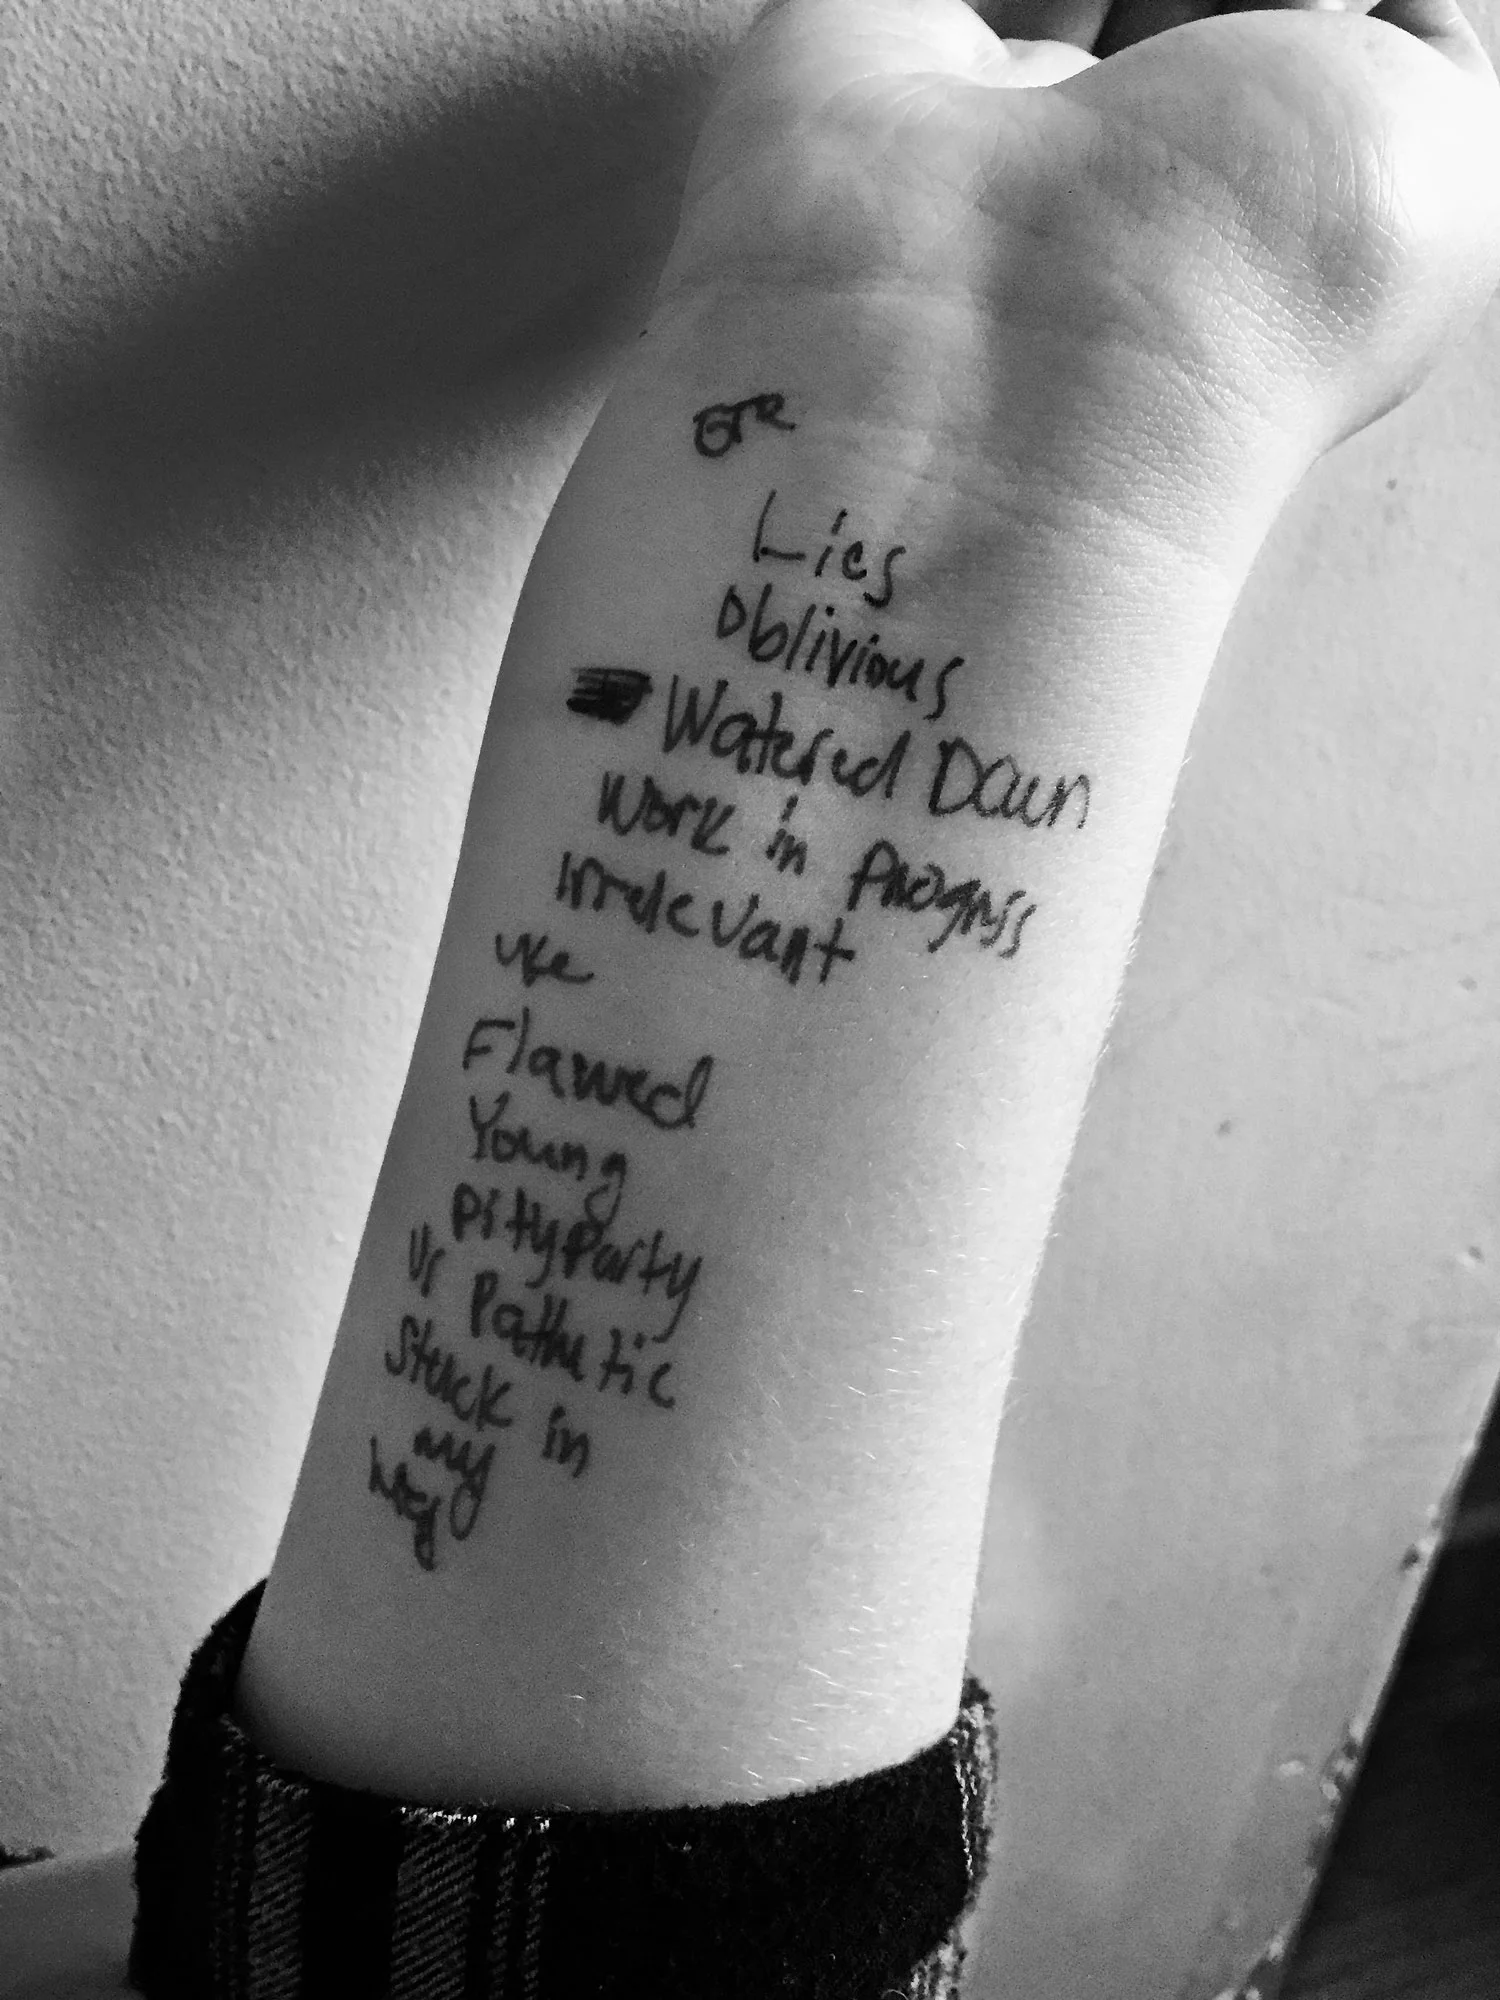 GTR
Lies
Oblivious
Watered Down
Work in Progress
Irrelevant
Flawed
Young
Pity Party
Vs Pathetic
Stuck in
my